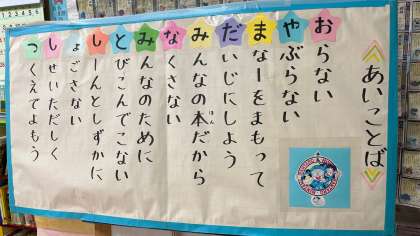 《あいことば》
おらない
やぶらない
まなーをまもって
だいじにしよう
みんなの本だから
ほん
なくさない
みんなのために
とびこんでこない
しーんとしずかに
ょごさない
しせいただしく
つくえでよもう